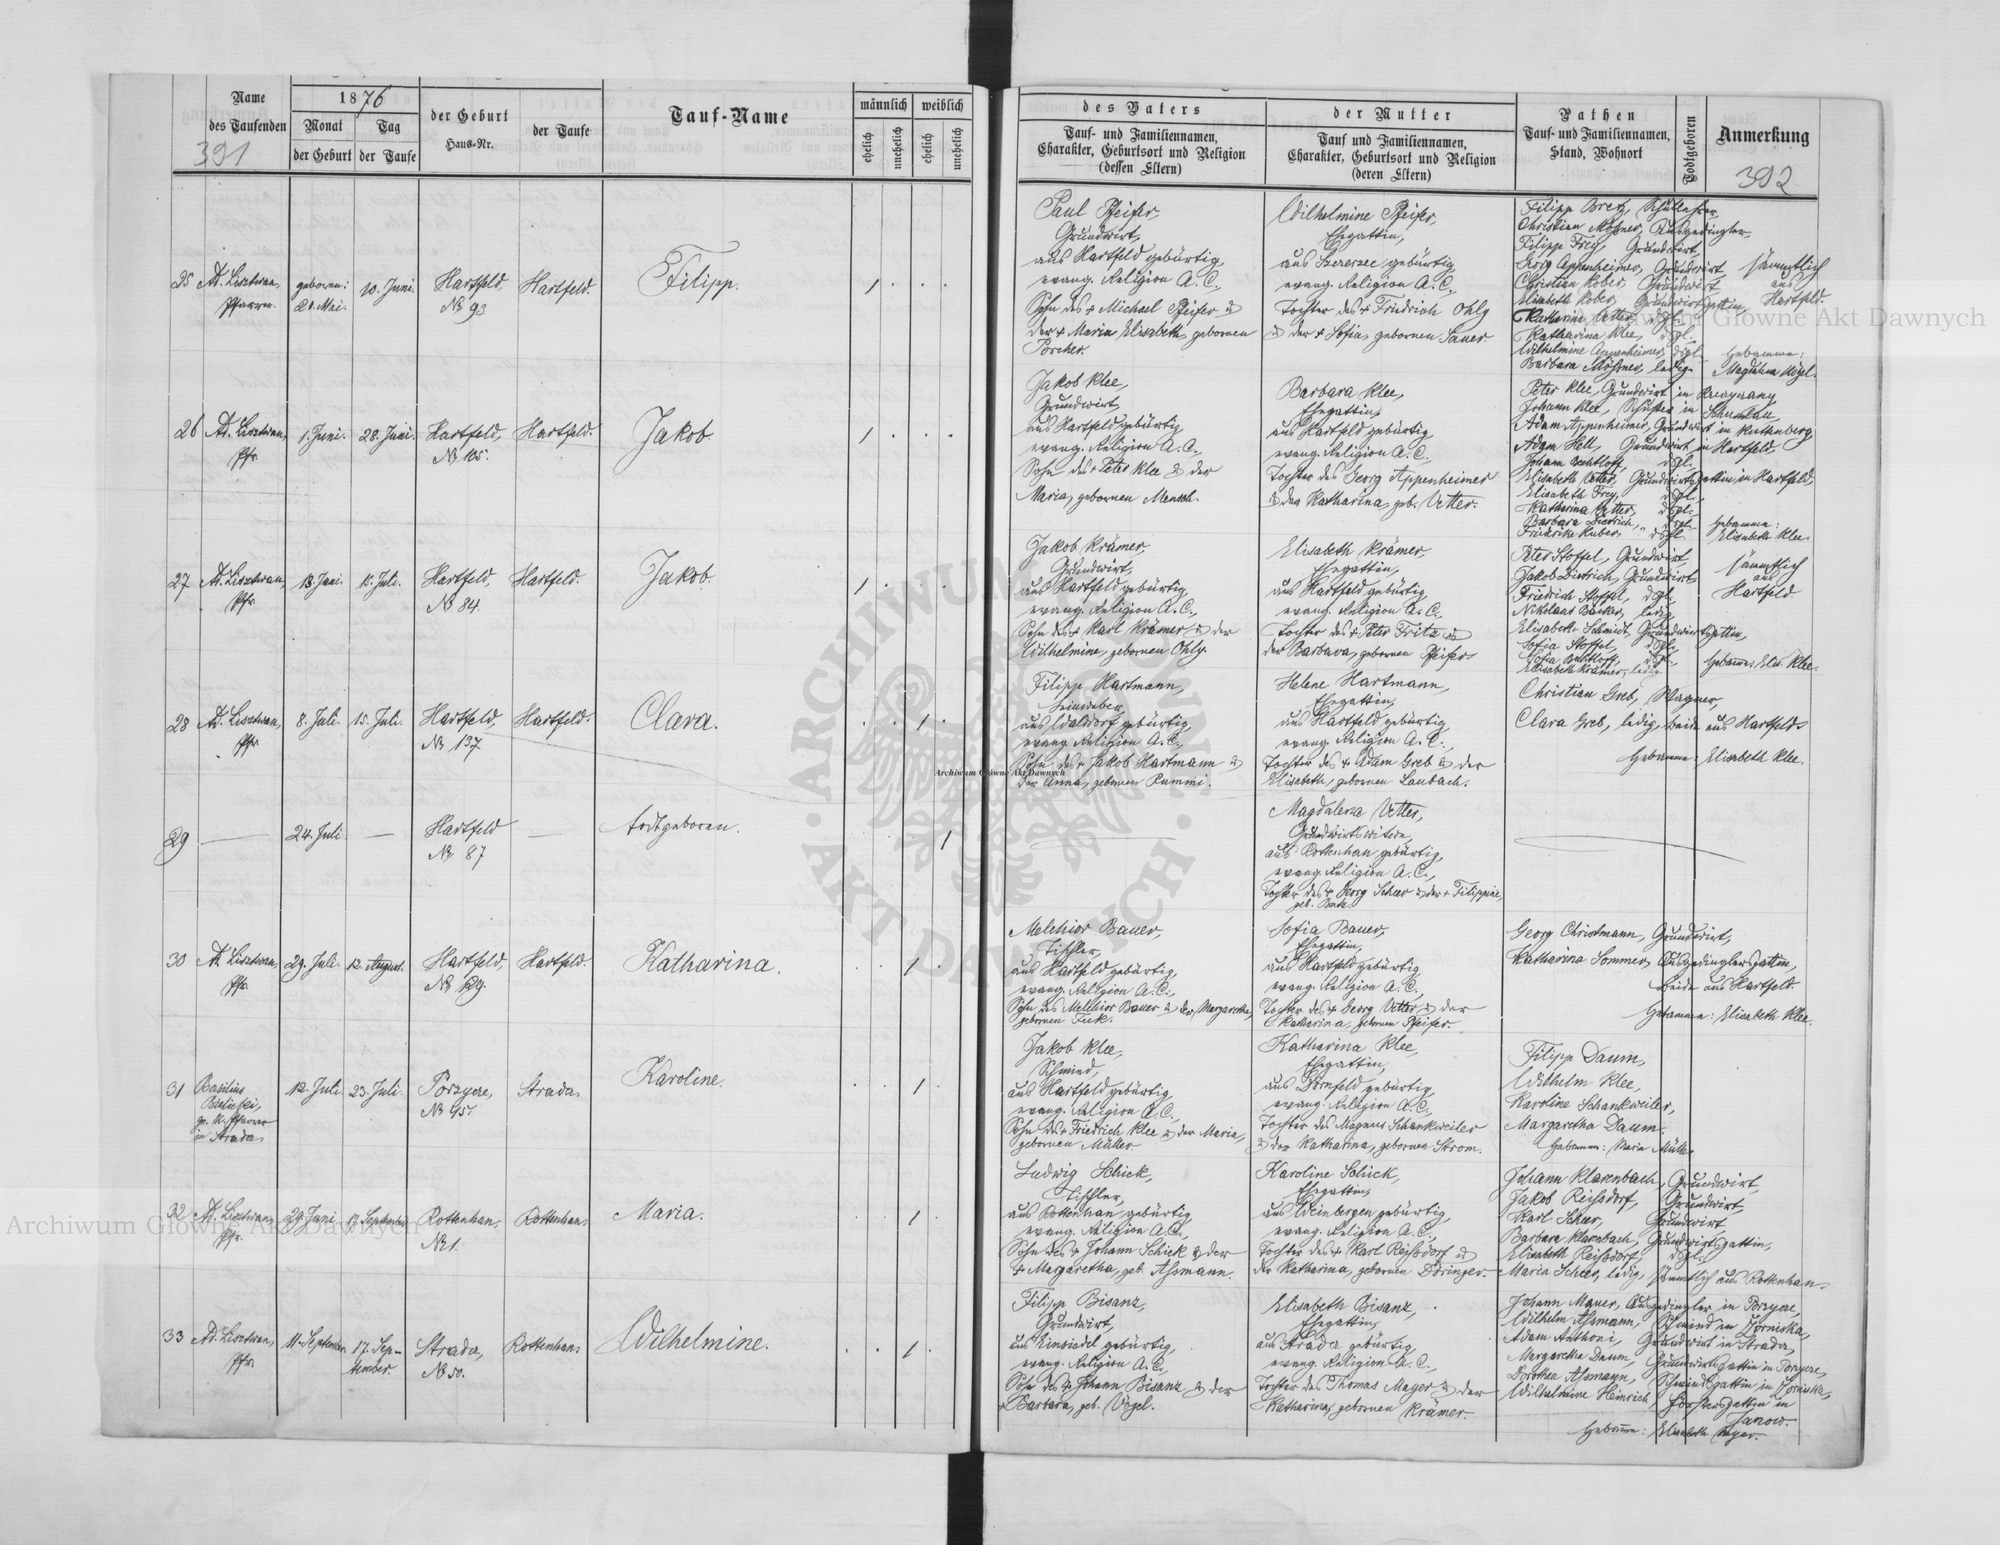 Name
des Taufenden
391
1876
Monat
Tag
der Geburt
der Taufe
der Geburt
Haus-Nr.
der Taufe
Tauf-Name
männlich
weiblich
ehelich
unehelich
ehelich
unehelich
des Vaters
Tauf- und Familiennamen,
Charakter, Geburtsort und Religion
(dessen Eltern)
der Mutter
Tauf und Familiennamen,
Charakter, Geburtsort und Religion
(deren Eltern)
Pathen
Tauf- und Familiennamen,
Stand, Wohnort
Todtgeboren
Anmerkung
392
25
Ad. Lisztwan,
Pfarrer.
geboren:
21. Mai.
10. Juni.
Hartfeld
No 93
Hartfeld.
Filipp.
Paul Pfeifer,
Grundwirt,
aus Hartfeld gebürtig,
evang. Religion A. C.,
Sohn des + Michael Pfeifer &
der + Maria Elisabeth, gebornen
Porcher.
Wilhelmine Pfeifer,
Ehegattin,
aus Szczerzec gebürtig
evang. Religion A. C.,
Tochter des + Friedrich Ohly
& der + Sofia, gebornen Sauer.
Filipp Bretz, Schullehrer
Christian Mößner, Ausgedingler,
Filipp Frey, Grundwirt,
Georg Appenheimer, Grundwirt,
Christian Kober, Grundwirt
Elisabeth Kober, Grundwirtsgattin,
Katharina Vetter, dsgl.
Katharina Klee, dsgl.
Wilhelmine Appenheimer, dsgl.
Barbara Mößner, ledig.
sämmtlich
aus
Hartfeld.
Gebamme:
Magdalena Vogel.
26
Ad. Lisztwan,
Pfr.
1. Juni.
28. Juni.
Hartfeld,
No 105.
Hartfeld.
Jakob.
Jakob Klee,
Grundwirt,
aus Hartfeld gebürtig
evang. Religion A. C.,
Sohn des + Peter Klee & der
Maria, gebornen Menschl.
Barbara Klee,
Ehegattin,
aus Hartfeld gebürtig
evang. Religion A. C.,
Tochter des Georg Appenheimer
& der Katharina, geb. Vetter.
Peter Klee, Grundwirt in
Johann Klee, Schuster in
Adam Appenheimer, Grundwirt in Reichenberg
Adam Hell, Grundwirt in Hartfeld,
Johann Bechtloff, dsgl.
Elisabeth Vetter, Grundwirtsgattin, in Hartfeld,
Elisabeth Frey, dsgl.
Katharina Vetter, dsgl.
Barbara Dietrich, dsgl.
Friedrike Huber, dsgl.
Gebamme:
Elisabeth Klee
27
Ad. Lisztwan,
Pfr.
13. Juni.
Juli.
Hartfeld,
No 84.
Hartfeld.
Jakob.
Jakob Krämer,
Grundwirt,
aus Hartfeld gebürtig,
evang. Religion A. C.,
Sohn des + Karl Krämer & der
Wilhelmine, gebornen Ohly.
Elisabeth Krämer,
Ehegattin,
aus Hartfeld gebürtig
evang. Religion A. C.,
Tochter des + Peter Fritz &
der Barbara, gebornen Pfeifer
Peter Stoffel, Grundwirt,
Jakob Dietrich, Grundwirt
Friedrich Stoffel, dsgl.
Nikolaus Becker, ledig.
Elisabeth Schmidt, Grundwirtsgattin,
Sofia Stoffel, dsgl.
Sofia Bechtloff, dsgl.
Elisabeth Krämer, ledig.
sämmtlich
aus
Hartfeld
Gebamme: Elis. Klee.
28
Ad. Lisztwan,
Pfr.
8. Juli.
15. Juli.
Hartfeld,
No 137.
Hartfeld.
Clara.
Filipp Hartmann,
Leinweber,
aus Walddorf gebürtig,
evang. Religion A. C.,
Sohn des + Jakob Hartmann &
der Anna, gebornen Rummi.
Helene Hartmann,
Ehegattin,
aus Hartfeld gebürtig
evang. Religion A. C.,
Tochter des + Adam Greb & der
Elisabeth, gebornen Laubach.
Christian Greb, Wagner,
Clara Greb, ledig, beide aus Hartfeld.
Gebamme: Elisabeth Klee.
29
24. Juli
Hartfeld
No 87
todtgeboren.
Magdalena Vetter,
Grundwirtswitwe,
aus Rottenhan gebürtig,
evang. Religion A. C.,
Tochter des + Georg Scheer & der + Filippine,
30
Ad. Lisztwan,
Pfr.
29. Juli.
12. August.
Hartfeld,
No 129.
Hartfeld.
Katharina.
Melchior Bauer,
Tischler,
aus Hartfeld gebürtig,
evang. Religion A. C.,
Sohn des Melchior Bauer & der Margaretha,
gebornen Fuck.
Sofia Bauer,
Ehegattin,
aus Hartfeld gebürtig
evang. Religion A. C.,
Tochter des + Georg Vetter & der
Katharina, gebornen Pfeifer.
Georg Christmann, Grundwirt,
Katharina Sommer, Ausgedinglersgattin,
beide aus Hartfeld.
Gebamme: Elisabeth Klee.
31
Basilius
Bielicki,
gr. k. Pfarrer
in Strada
12. Juli
23. Juli.
Porzyce,
No 45.
Strada
Karoline.
Jakob Klee,
Schmied,
aus Hartfeld gebürtig,
evang. Religion A. C.,
Sohn des + Friedrich Klee & der Maria,
gebornen Müller.
Katharina Klee,
Ehegattin,
aus Dornfeld gebürtig,
evang. Religion A. C.,
Tochter des Magnus Schankweiler
& der Katharina, gebornen Strom.
Filipp Daum,
Wilhelm Klee,
Karoline Schankweiler,
Margaretha Daum.
Gebamme: Maria Müller
32
Ad. Lisztwan,
Pfr.
29. Juni
September
Rottenhan.
No 1.
Rottenhan
Maria.
Ludwig Schick,
Tischler,
aus Rottenhan gebürtig,
evang. Religion A. C.,
Sohn des + Johann Schick & der
+ Margaretha, geb. Aßmann.
Karoline Schick,
Ehegattin,
aus Weinbergen gebürtig,
evang. Religion A. C.,
Tochter des + Karl Reißdorf &
der Katharina, gebornen Döringer.
Johann Klarenbach, Grundwirt,
Jakob Reißdorf, Grundwirt,
Karl Scheer, Grundwirt
Barbara Klarenbach, Grundwirtsgattin,
Elisabeth Reißdorf, dsgl.
Maria Scheer, ledig, sämmtlich aus Rottenhan.
33
Ad. Lisztwan,
Pfr.
11. September.
17. Sep-
tember.
Strada,
No 50.
Rottenhan
Wilhelmine.
Filipp Bisanz,
Grundwirt,
aus Einsiedel gebürtig,
evang. Religion A. C.,
Sohn des + Johann Bisanz & der
+ Barbara, geb. Vogel.
Elisabeth Bisanz,
Ehegattin,
aus Strada gebürtig
evang. Religion A. C.,
Tochter des Thomas Mayer & der
Katharina, gebornen Krämer.
Johann Mauer, Ausgedingler in Porzyce,
Wilhelm Aßmann, Schmied in
Adam Anthoni, Grundwirt in Strada,
Margaretha Daum, Grundwirtsgattin in Porzyce,
Dorothea Aßmann, Schmiedsgattin in
Wilhelmine Heinrich, Förstersgattin in
Janow.
Gebamme: Elisabeth Mayer.
Archiwum Główne Akt Dawnych
Archiwum Główne Akt Dawnych
Archiwum Główne Akt Dawnych
ARCHIWUM GŁÓWNE AKT DAWNYCH